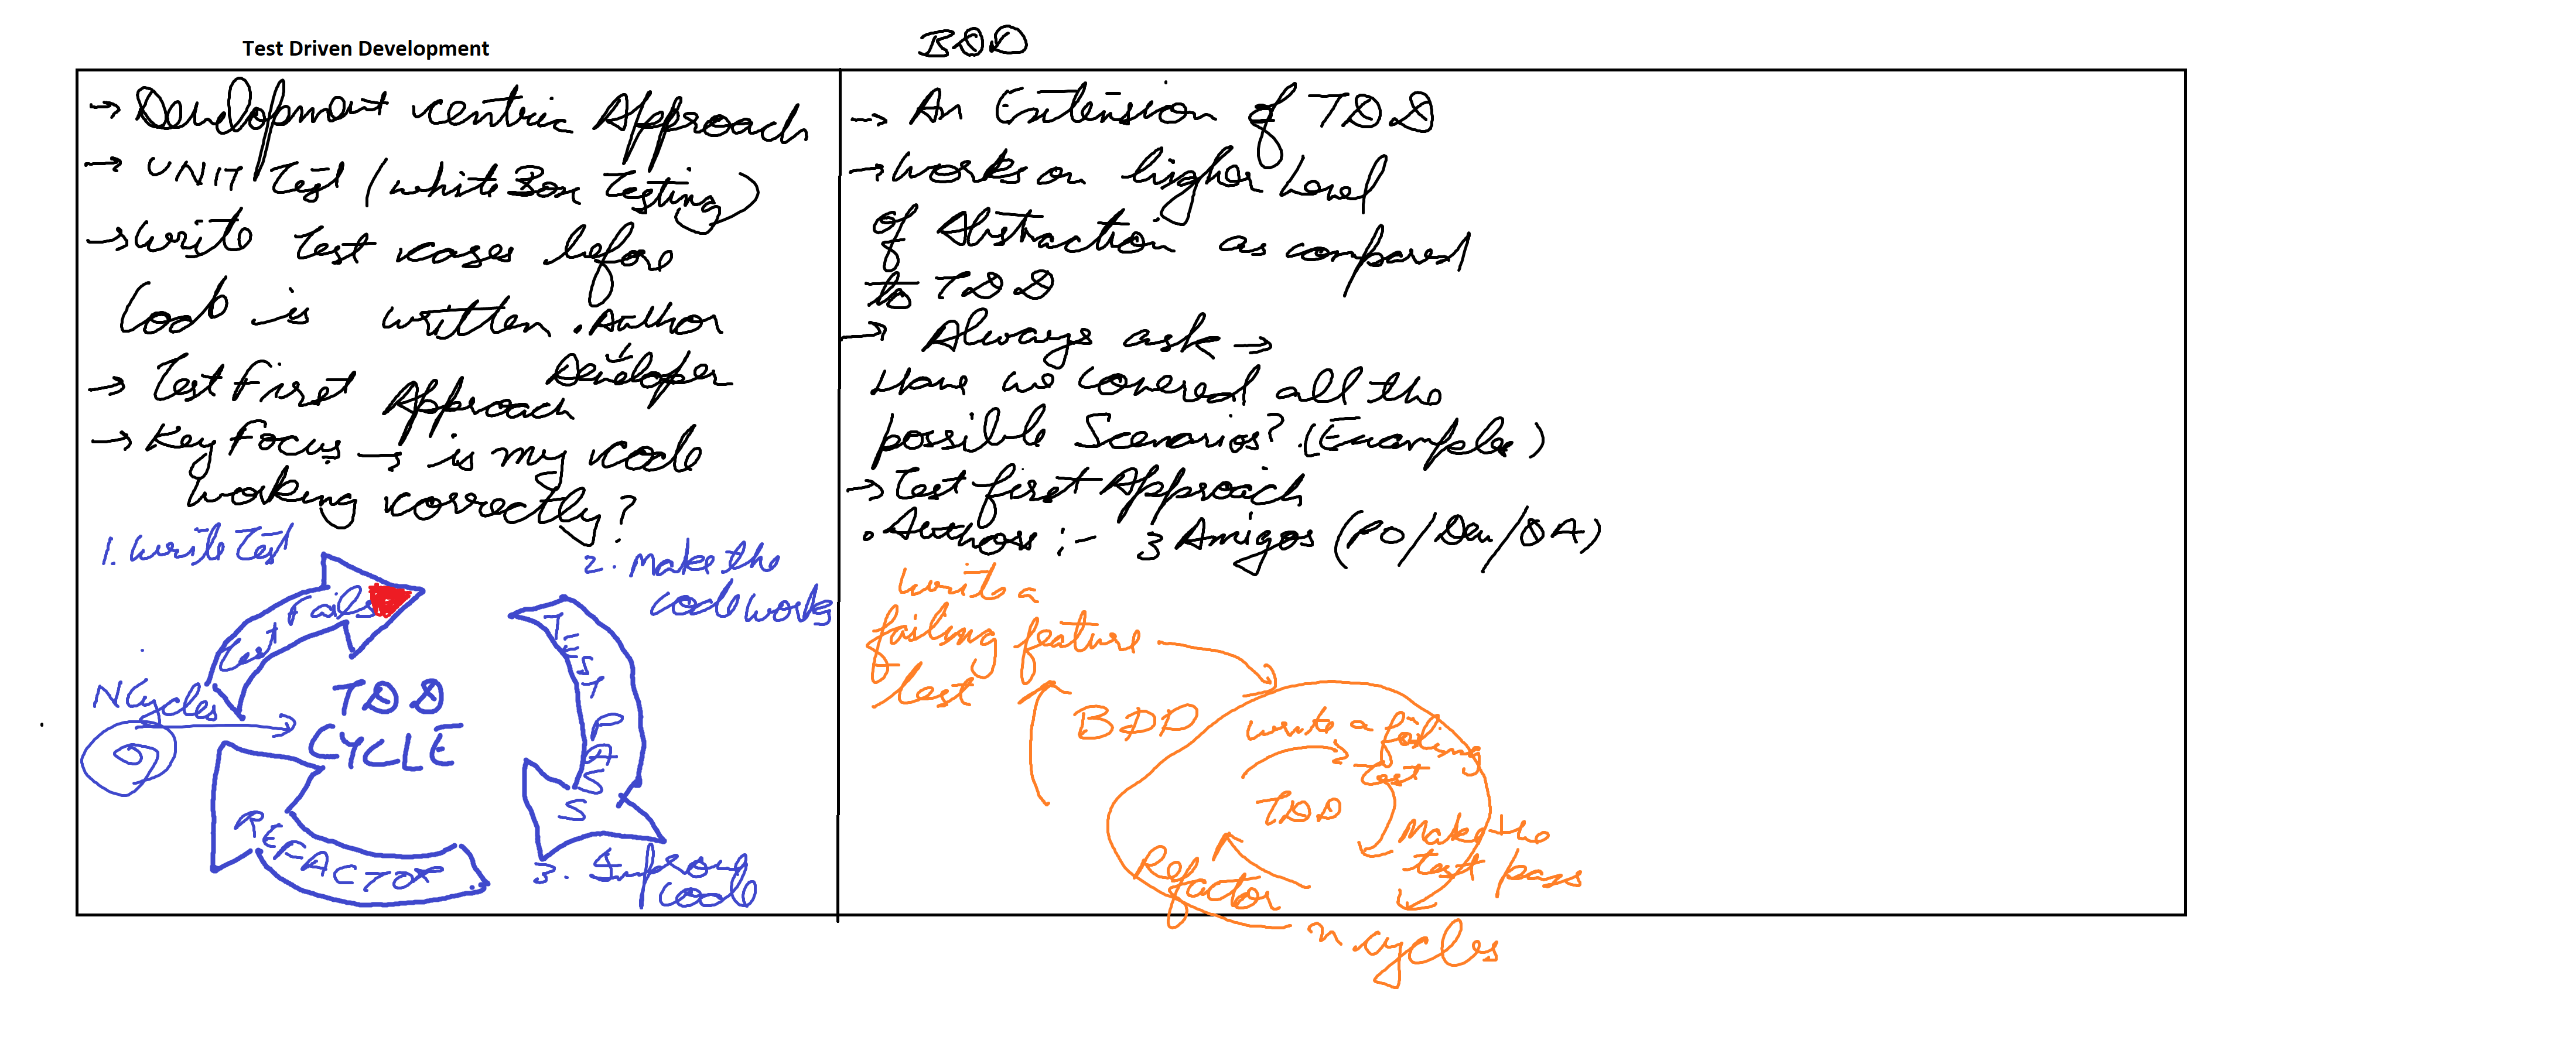 Test Driven Development
BDD
→ Development centric Approach
→ UNIT Test (white Box Testing)
→ write test cases before
Code is written . Author
Developer
→ Test first Approach
→ Key Focus → is my code
working correctly?
1. write Test
2. Make the
code works
Test Fails
TEST PASS
N Cycles
TDD
CYCLE
REFACTOR
3. Improve
code
→ An Extension of TDD
→ works on higher Level
of Abstraction as compared
to TDD
→ Always ask →
Have we covered all the
possible Scenarios? (Example)
→ Test first Approach
. Authors :- 3 Amigos (PO/Dev/QA)
write a
failing feature
test
BDD
write a failing
test
TDD
Make the
test pass
Refactor
n cycles